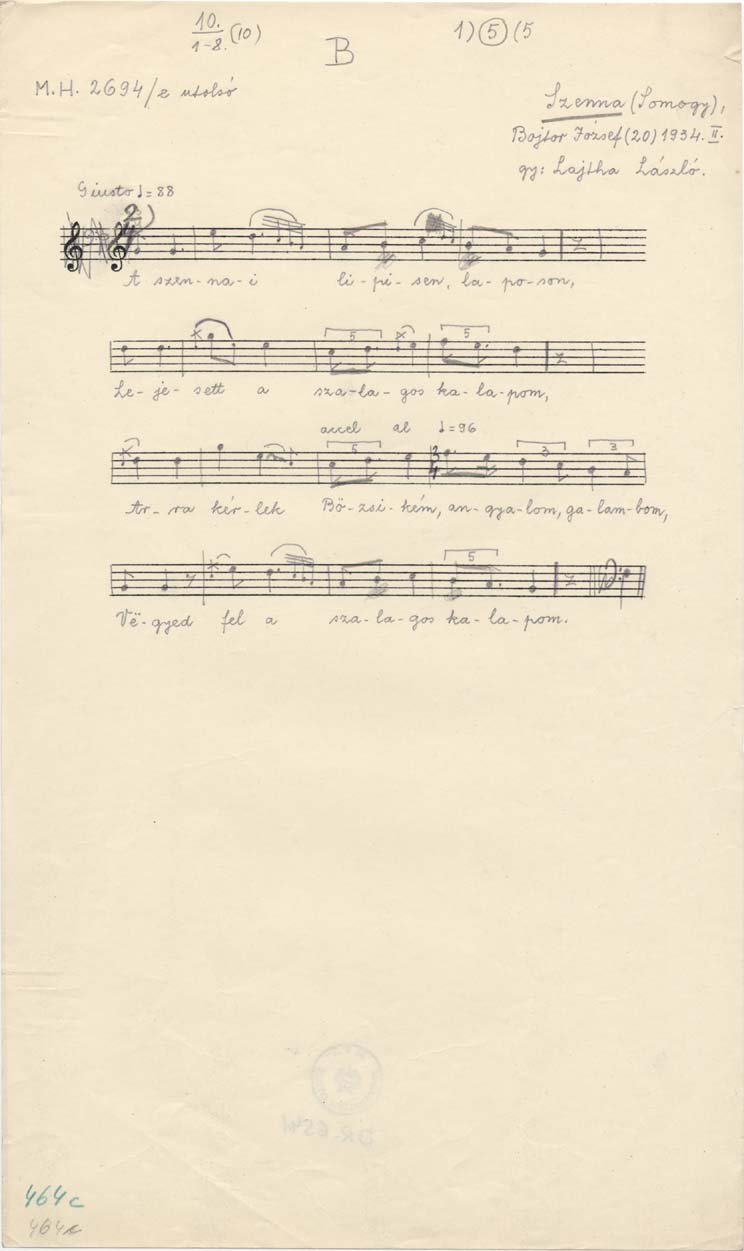 10. (10)
1-8.
1) 5 (5
B
M.H. 2694/e utolsó
Szenna (Somogy),
Bojtor József (20) 1934. II.
gy: Lajtha László.
Giusto ♩= 88
2
4
A szen-na-i li-pi-sen, la-po-son,
5 5
Le-je-sett a sza-la-gos ka-la-pom,
accel al ♩=96
5 3 3
3
4
Ar-ra kér-lek Bö-zsi-kém, an-gya-lom, ga-lam-bom,
5
Vë-gyed fel a sza-la-gos ka-la-pom.
464c
464c